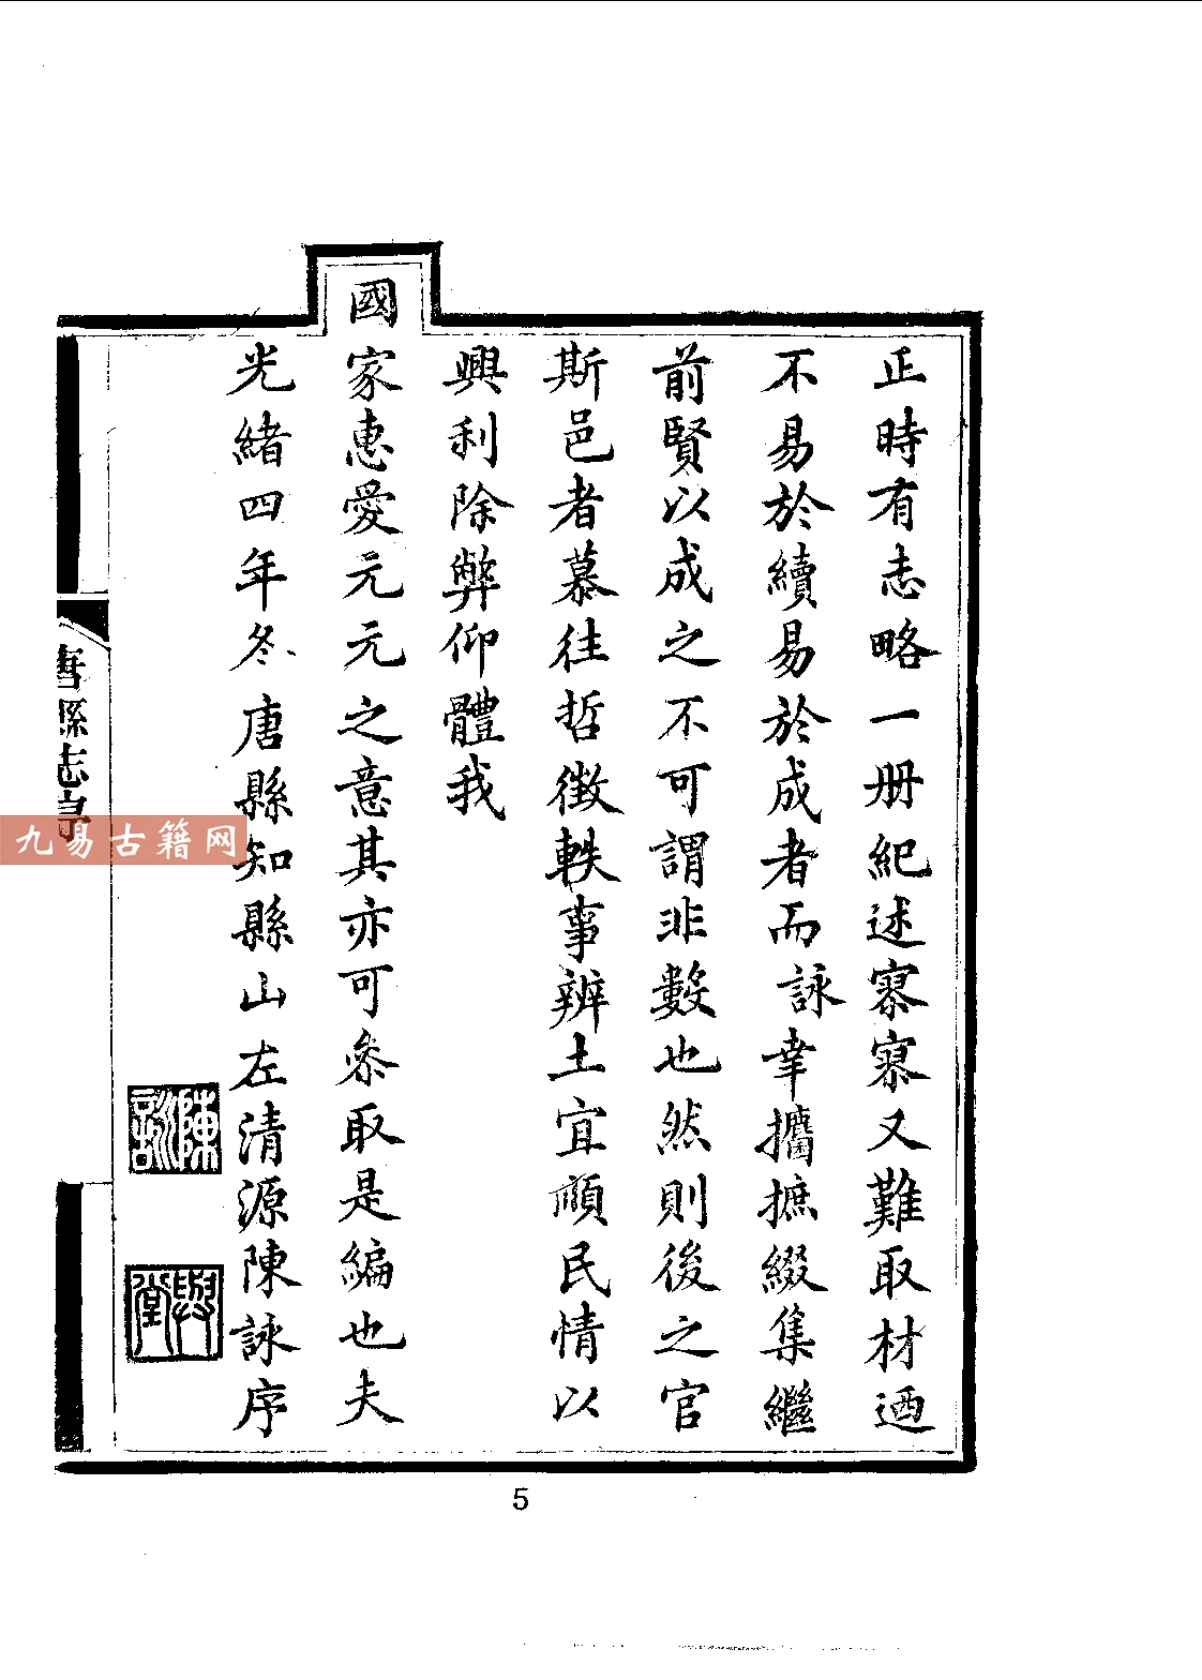 正時有志略一册紀述寥寥又難取材迺
不易於續易於成者而詠幸攟摭綴集繼
前賢以成之不可謂非數也然則後之官
斯邑者慕往哲徵軼事辨土宜順民情以
興利除弊仰體我
國家惠愛元元之意其亦可叅取是編也夫
光緒四年冬唐縣知縣山左清源陳詠序
陳詠
興堂
唐縣志序
九易古籍网
5